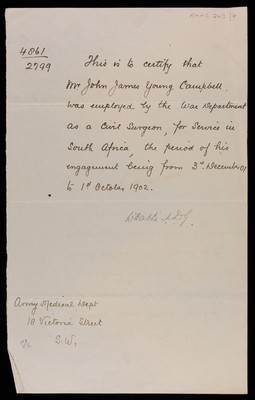 4061
2799
This is to certify that
Mr John James Young Campbell
was employed by the War Department
as a Civil Surgeon, for Service in
South Africa, the period of his
engagement being from 3rd December 01
to 1st October 1902.
Army Medical Dept
18 Victoria Street
S.W.